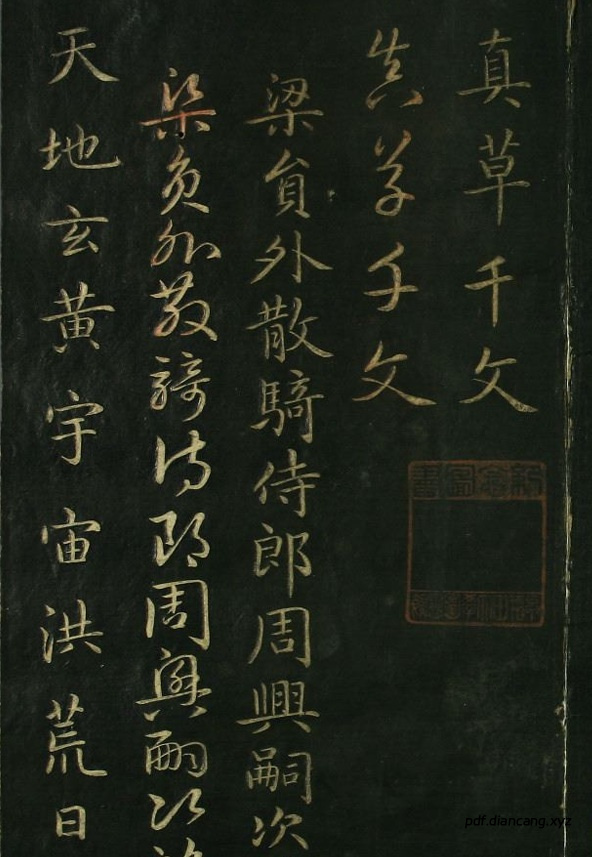 真草千文
真草千文
梁員外散騎侍郎周興嗣次
梁員外散騎侍郎周興嗣次
天地玄黃宇宙洪荒日
pdf.diancang.xyz